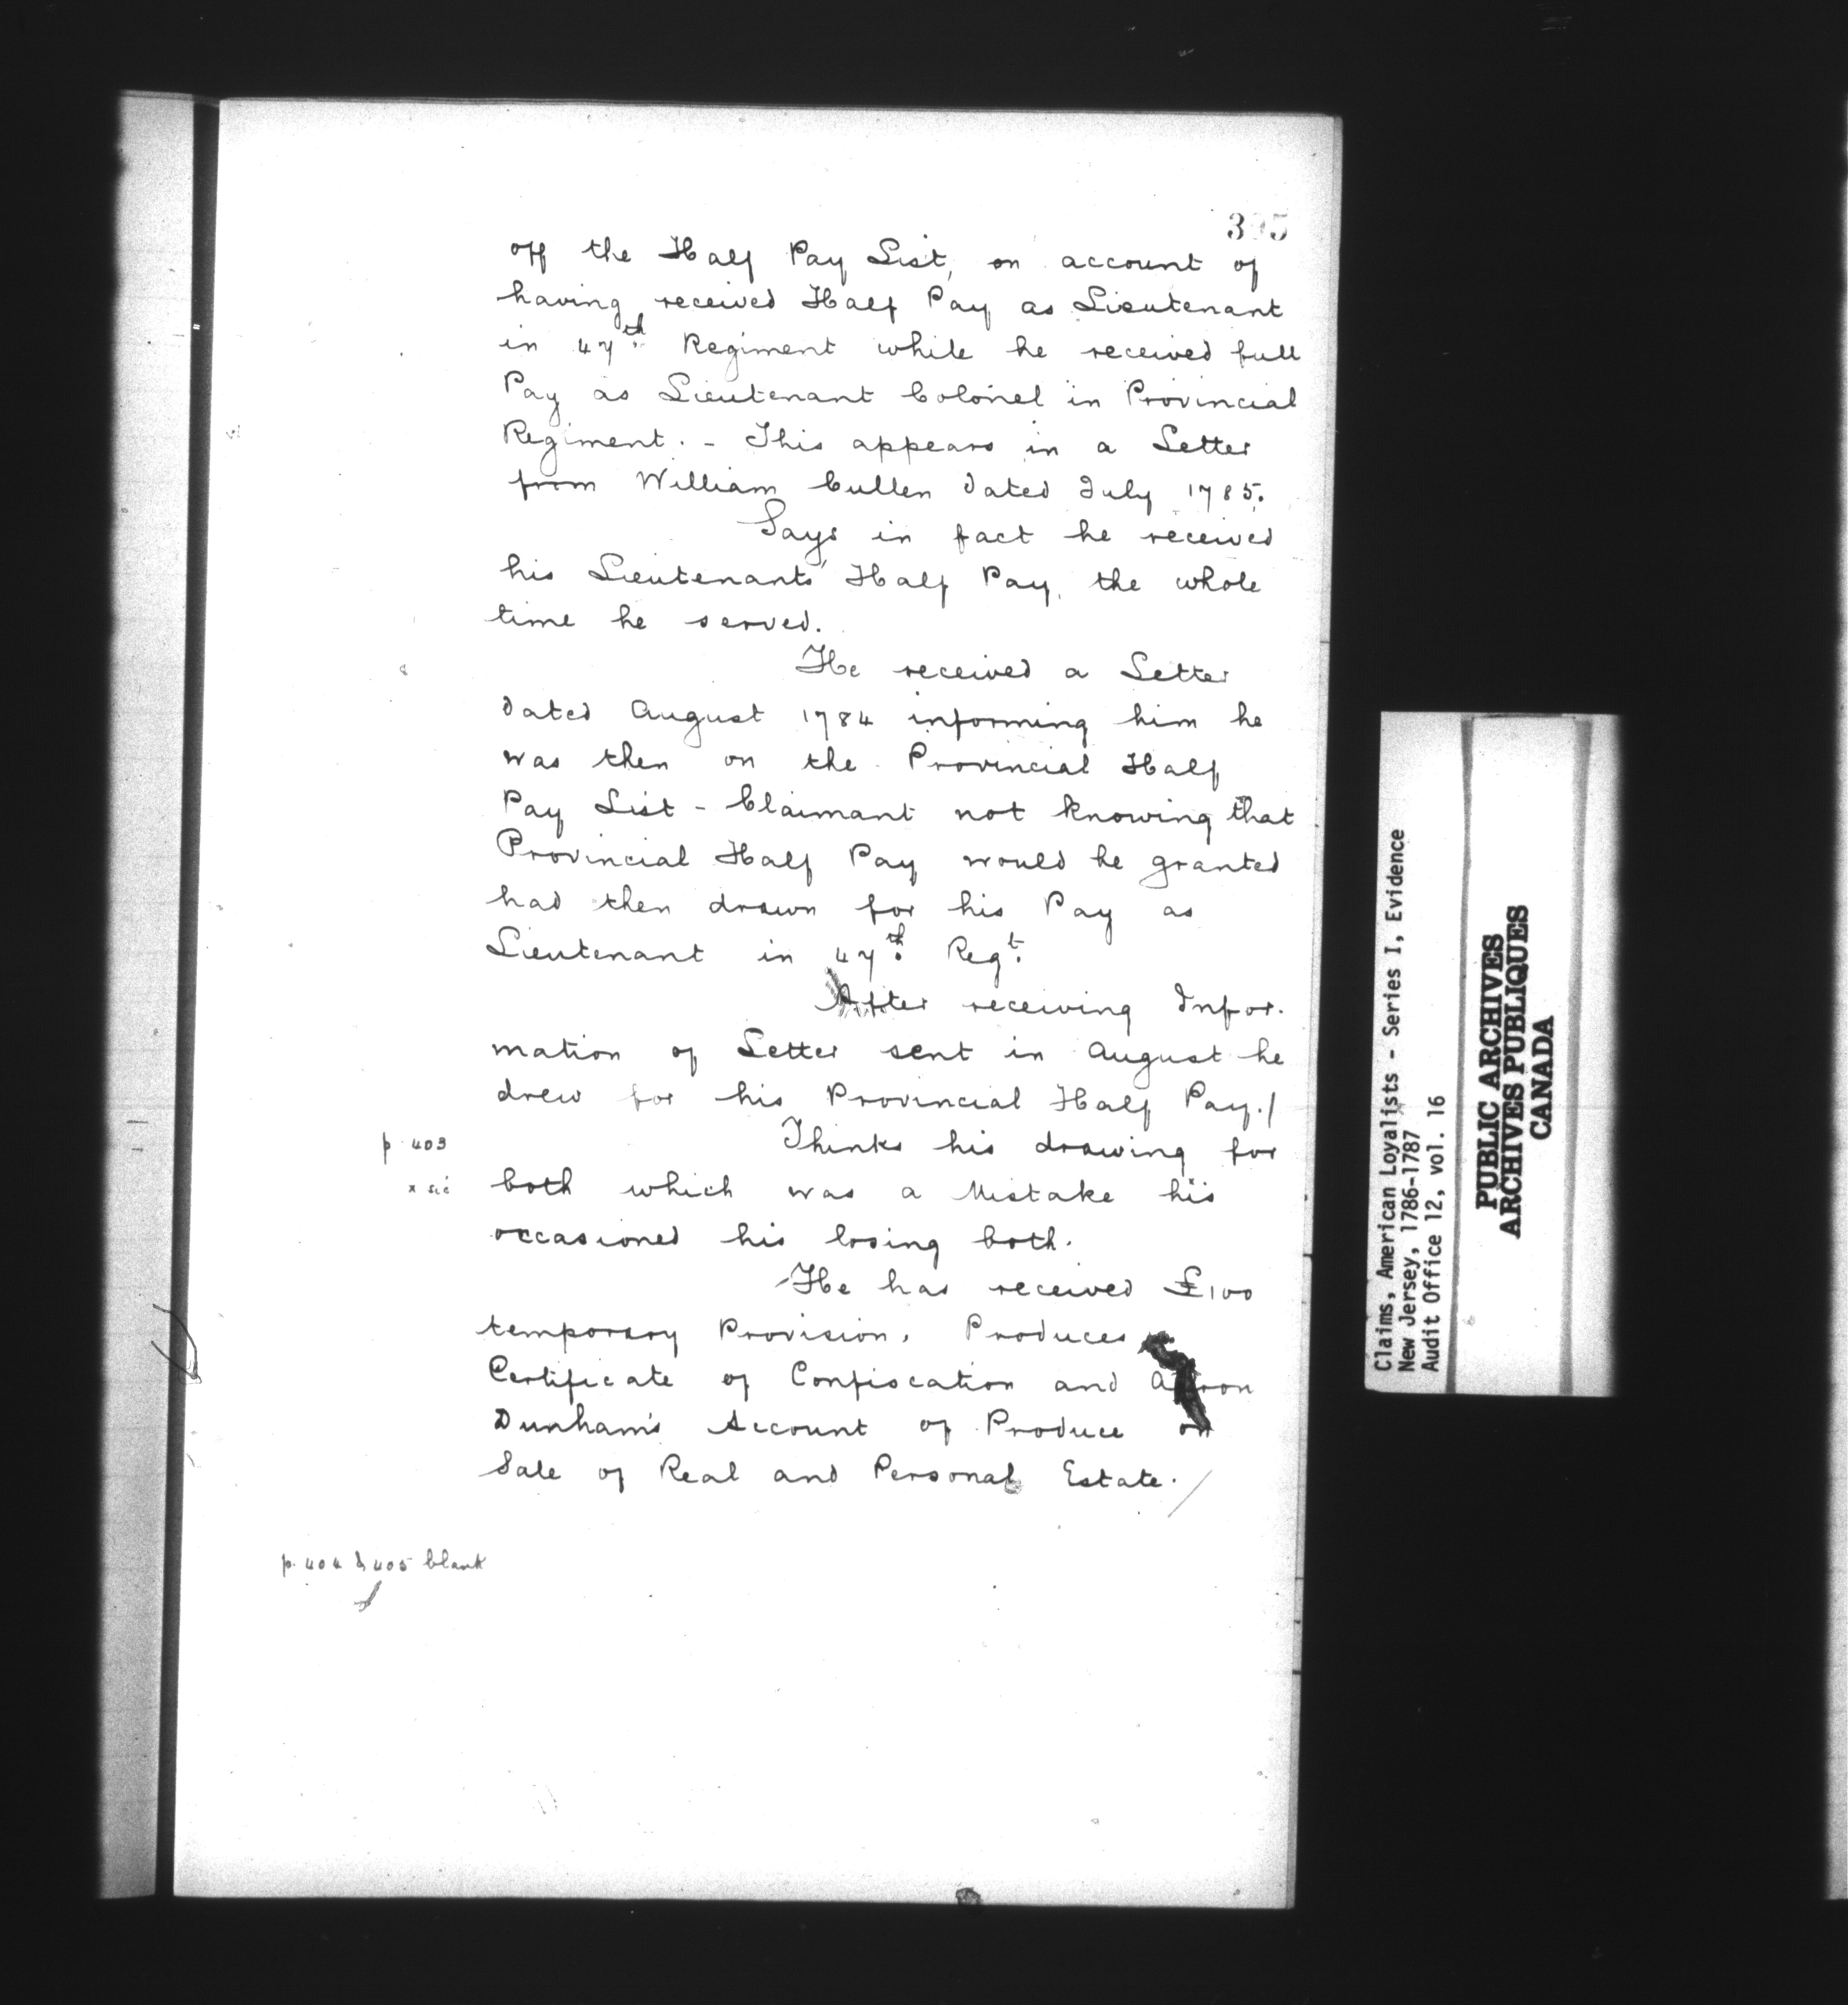 395
off the Half Pay List, on account of
having received Half Pay as Lieutenant
in 47th Regiment while he received full
Pay as Lieutenant Colonel in Provincial
Regiment. - This appears in a Letter
from William Cullen dated July 1785.
Says in fact he received
his Lieutenants' Half Pay, the whole
time he served.
He received a Letter
dated August 1784 informing him he
was then on the Provincial Half
Pay List - Claimant not knowing that
Provincial Half Pay would be granted
had then drawn for his Pay as
Lieutenant in 47th Regt.
After receiving Infor-
mation of Letter sent in August he
drew for his Provincial Half Pay./
p 403
Thinks his drawing for
x sic
both which was a Mistake his
occasioned his losing both.
He has received £100
temporary Provision. Produces
Certificate of Confiscation and Aaron
Dunham's Account of Produce on
Sale of Real and Personal Estate./
p. 404 & 405 blank
Claims, American Loyalists - Series I, Evidence
New Jersey, 1786-1787
Audit Office 12, vol. 16
PUBLIC ARCHIVES
ARCHIVES PUBLIQUES
CANADA